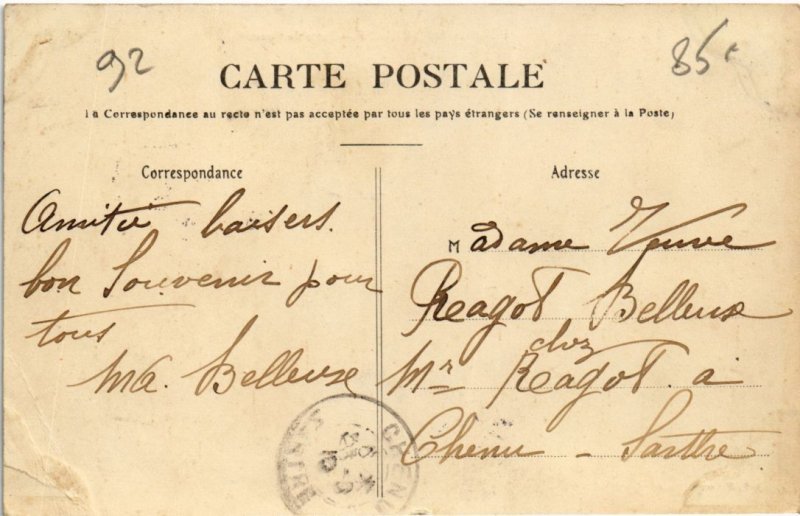 92
85
CARTE POSTALE
La Correspondance au recto n'est pas acceptée par tous les pays étrangers (Se renseigner à la Poste)
Correspondance
Amitié baisers.
bon Souvenir pour
tous
Ma. Belleuse
Adresse
Madame Veuve
Reagot Belleuse
chez
Mr Reagot a
Chenu - Sarthe